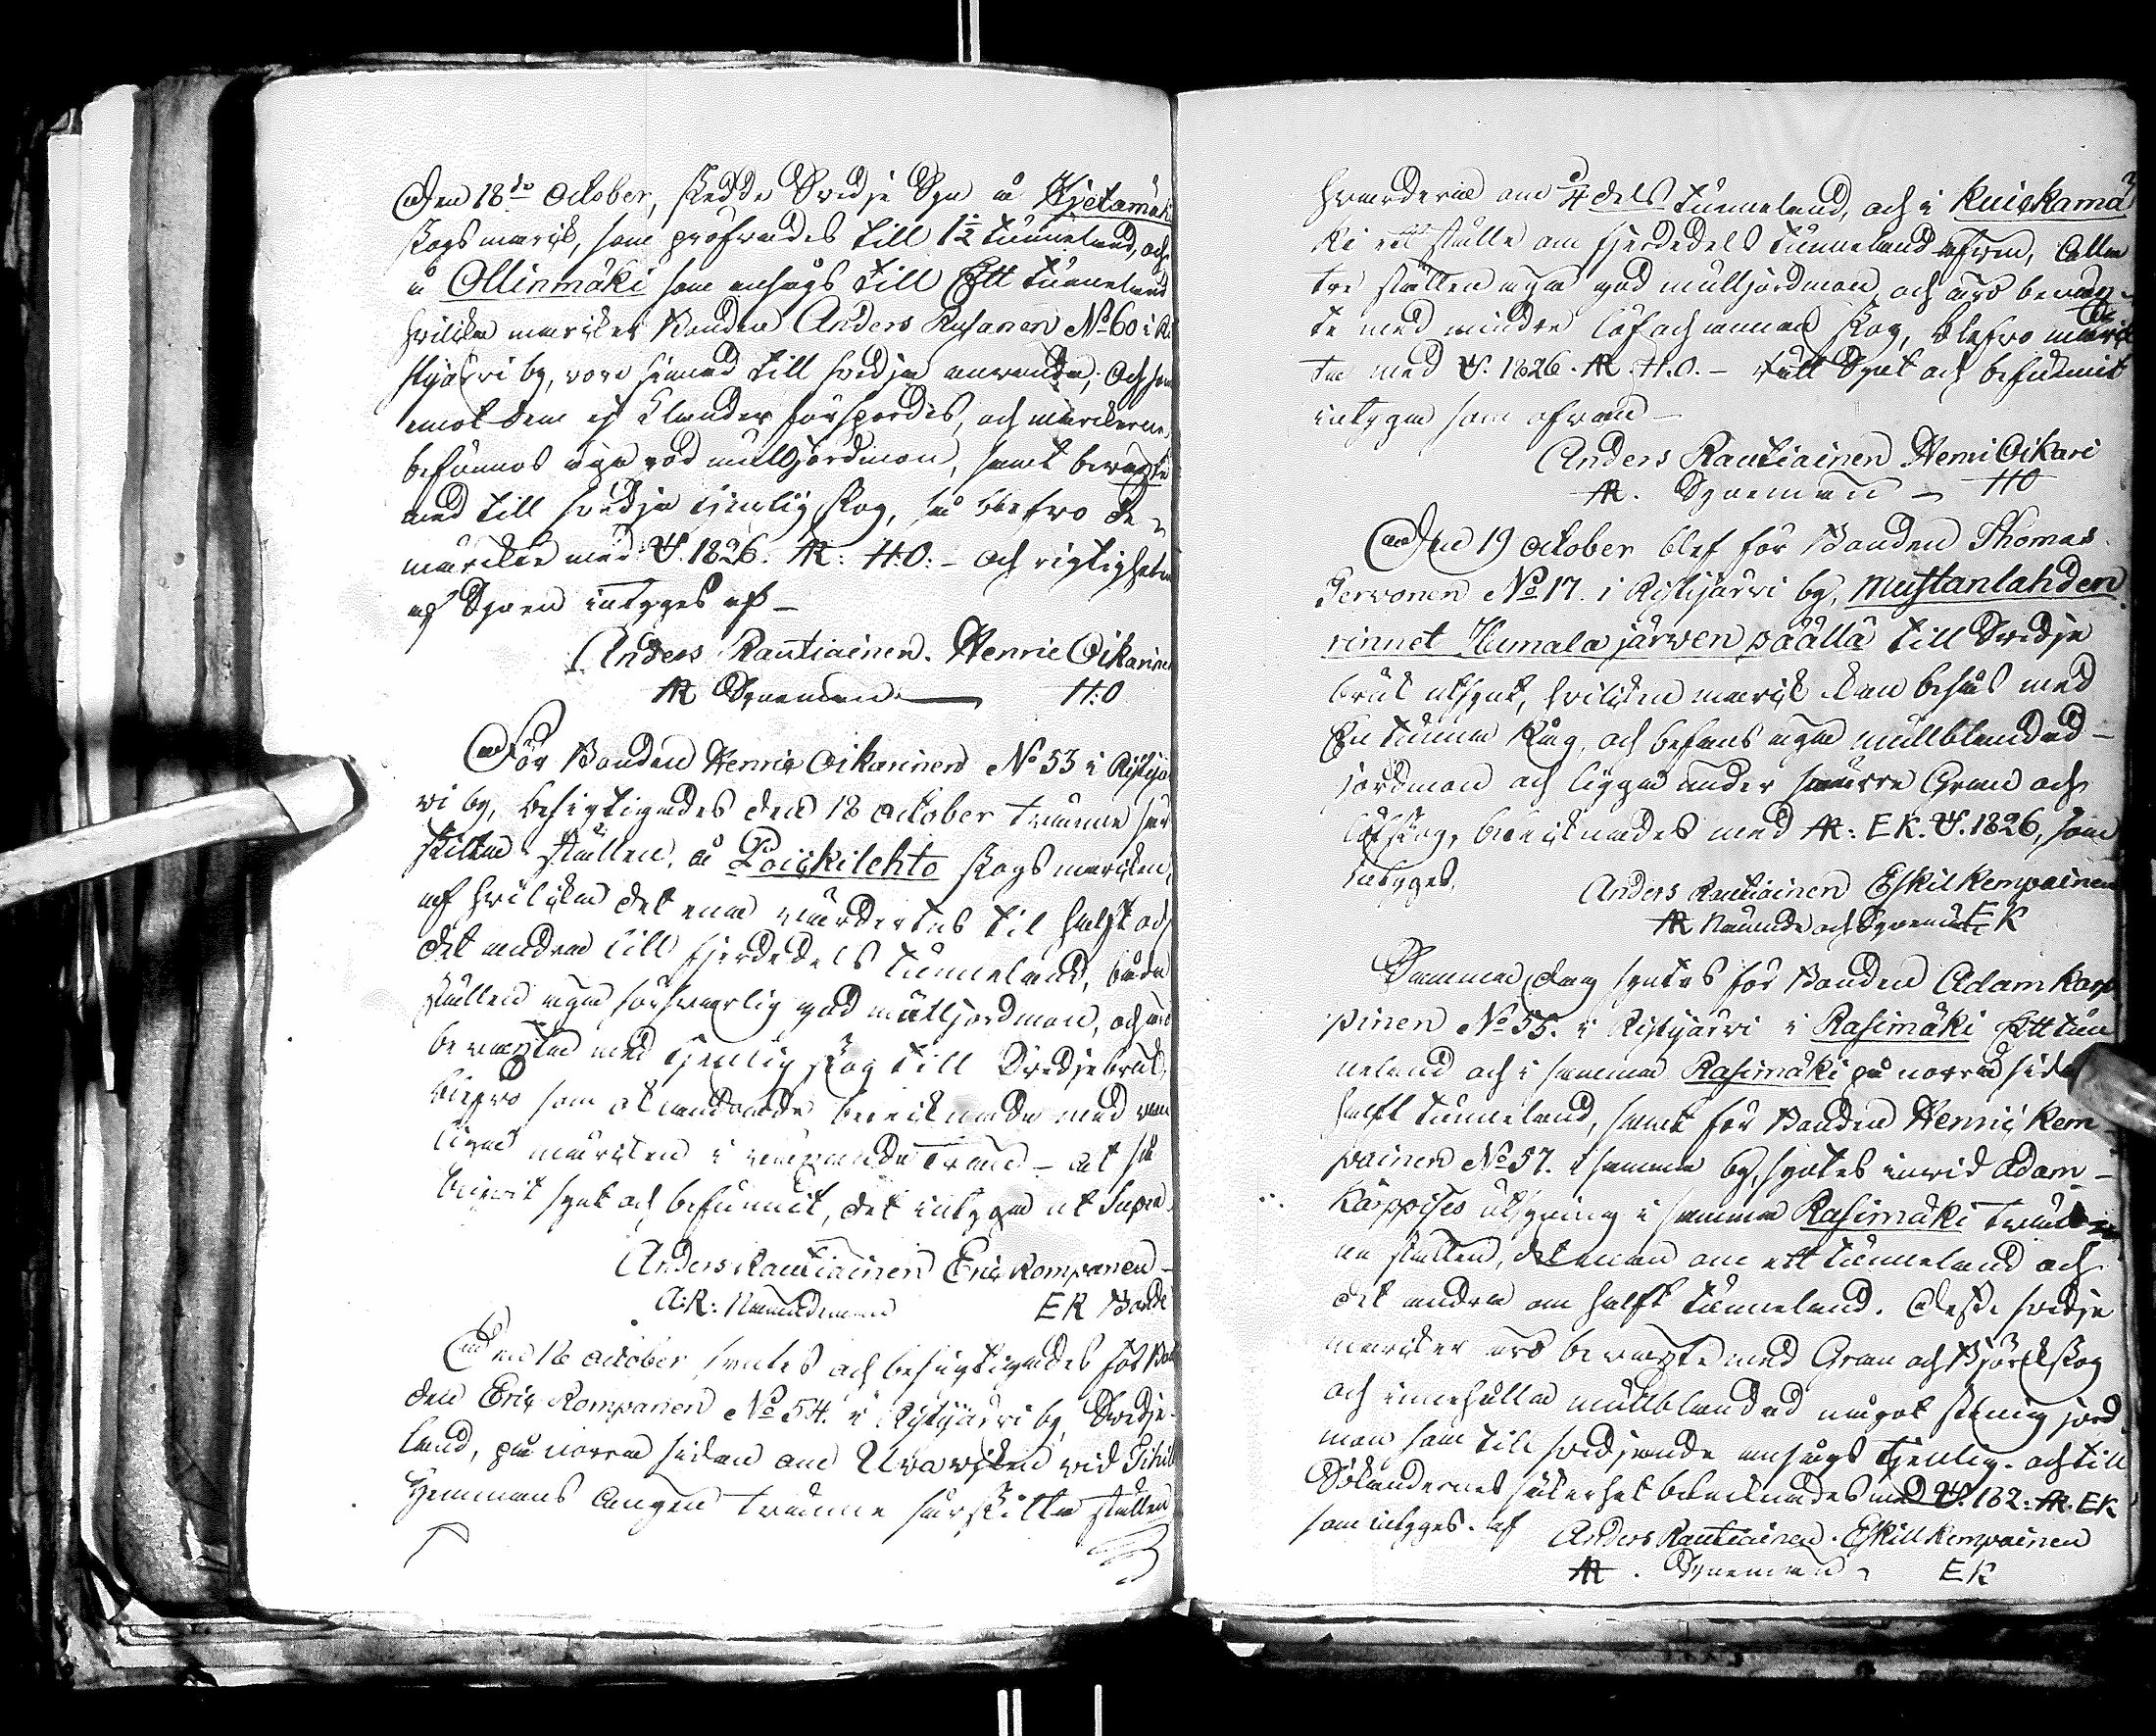 Den 18de October, skedde Svedje Syn å Kjetämäki
skogsmark, som pröfvades till 1½ tunneland, och
å Ollinmäki som ansågs till Ett tunneland
hvilka marker Bonden Anders Rusanen No 60 i Ri
stijärvi by, vore sinnad till svedja använda; Och som
emot dem ej klander förspordes, och markerne
befunnos äga god mulljordmon, samt bevuxne
med till svedja tjenlig skog, så blefvo de
märkte med V. 1826. AR: H:O: - och rigtigheten
af Synen intyges af -
Anders Rautiainen. Henric Oikarinen
AR Synemän H:O
För Bonden Henric Oikarinen No 53 i Ristijär
vi by, besigtigades den 18 October tvänne sär
skilda ställen, å Loiskilehto skogsmarken,
af hvilka det ena värdertes til halft och
det andra till fjerdedels tunneland, båda
ställen äga försvarlig god mulljordmon, och äro
bevuxta med tjenlig skog till Svedjebruk,
blefvo som okandrade betecknade med van
liga märken i växande Träd - at så
blifvit synt och befunnit, det intyga ut Supra
Anders Rautiainen Eric Komparen
A:R: Nämndeman EK Bonde
Den 18 October syntes och besigtigades för Bon
den Eric Komparen No 54. i Ristijärvi by, Svedje
land, på norra sidan om Uvaviken vid
Hemmans ängen tvänne särskilta ställen
hvardera om ¾ dels tunneland, och i Kuickamä
ki ett ställe om fjerdedels tunneland äfven, Alla
tre ställen äga god mulljordmon och äro bevux
te med mindre löf och annan skog, blefvo märk
te med V. 1826. AR H.O. - Rätt Synt och befunnit
intygas som ofvan -
Anders Rautiainen Henri Oikari
AR. Synemän - HO
Den 19 October blef för Bonden Thomas
Jervonen No 17. i Ristijärvi by, Mustanlahden
rinnet Humalajärwen päällä till Svedje
bruk utsynt, hvilken mark kan besås med
En tunna Råg, och befans äga mullblandad
jordmon och ligga under smärre Gran och
löfskog, betecknades med AR: EK. V. 1826, som
intyges.
Anders Rautiainen Eskil Kempainen
AR Nämnde och Synemän EK
Samma dag syntes för Bonden Adam Karp
pinen No 55. i Ristijärvi i Rasimäki Ett tun
neland och i samma Rasimäki på norra sidan
halft tunneland, samt för Bonden Henric Kem
painen No 57. i samma by, syntes invid Adam
Karppises utsyning i samma Rasimäki tvän
ne ställen, det enan om ett tunneland och
det andra om halft tunneland. Desse svedje
marker äro bevuxte med Gran och Björkskog
och innehålla mullblandad något stenig jord
mon som till svedjande ansågs tjenlig. och till
Sökandernes säkerhet betecknades med V. 182: AR. EK
som intyges. af Anders Rautiainen. Eskill Kempainen
AR. Synemän, EK